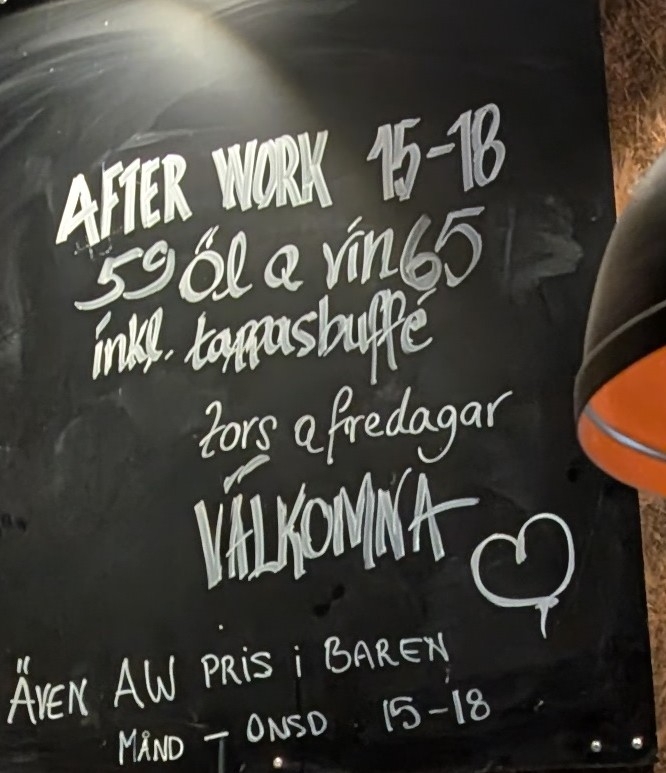 AFTER WORK 15-18
59 öl & vin 65
inkl. tappasbuffé
tors & fredagar
VÄLKOMNA
ÄVEN AW PRIS i BAREN
MÅND - ONSD 15-18